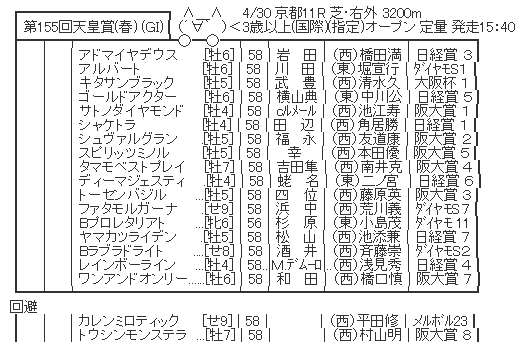 第155回天皇賞(春)(GI) 4/30 京都11R 芝・右外 3200m
( ´∀` )<3歳以上(国際)(指定)オープン 定量 発走15:40
アドマイヤデウス [牡6] 58 岩　田 (西)橋田満 日経賞 3
アルバート [牡6] 58 川　田 (東)堀宣行 ﾀﾞｲﾔﾓS1
キタサンブラック [牡5] 58 武　豊 (西)清水久 大阪杯 1
ゴールドアクター [牡6] 58 横山典 (東)中川公 日経賞 5
サトノダイヤモンド [牡4] 58 cﾙﾒｰﾙ (西)池江寿 阪大賞 1
シャケトラ [牡4] 58 田　辺 (西)角居勝 日経賞 1
シュヴァルグラン [牡5] 58 福　永 (西)友道康 阪大賞 2
スピリッツミノル [牡5] 58 幸 (西)本田優 阪大賞 5
タマモベストプレイ [牡7] 58 吉田隼 (西)南井克 阪大賞 4
ディーマジェスティ [牡4] 58 蛯　名 (東)二ノ宮 日経賞 6
トーセンバジル ...[牡5] 58 四　位 (西)藤原英 阪大賞 3
ファタモルガーナ ...[せ9] 58 浜　中 (西)荒川義 ﾀﾞｲﾔﾓS7
Bプロレタリアト ...[牝6] 56 杉　原 (東)小島茂 ﾀﾞｲﾔﾓ11
ヤマカツライデン ...[牡5] 58 松　山 (西)池添兼 日経賞 7
Bラブラドライト ....[せ8] 58 酒　井 (西)斉藤崇 ﾀﾞｲﾔﾓS2
レインボーライン ....[牡4] 58 M.ﾃﾞﾑｰﾛ (西)浅見秀 日経賞 4
ワンアンドオンリー.....[牡6] 58 和　田 (西)橋口慎 阪大賞 7
回避
カレンミロティック [せ9] 58 (西)平田修 ﾒﾙﾎﾞﾙ23
トウシンモンステラ ...[牡7] 58 (西)村山明 阪大賞 8